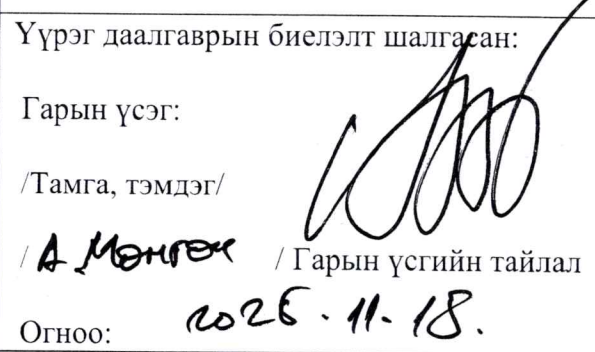 Үүрэг даалгаврын биелэлт шалгасан:
Гарын үсэг:
/Тамга, тэмдэг/
/ А. / Гарын үсгийн тайлал
Огноо: 2025. 11. 18.